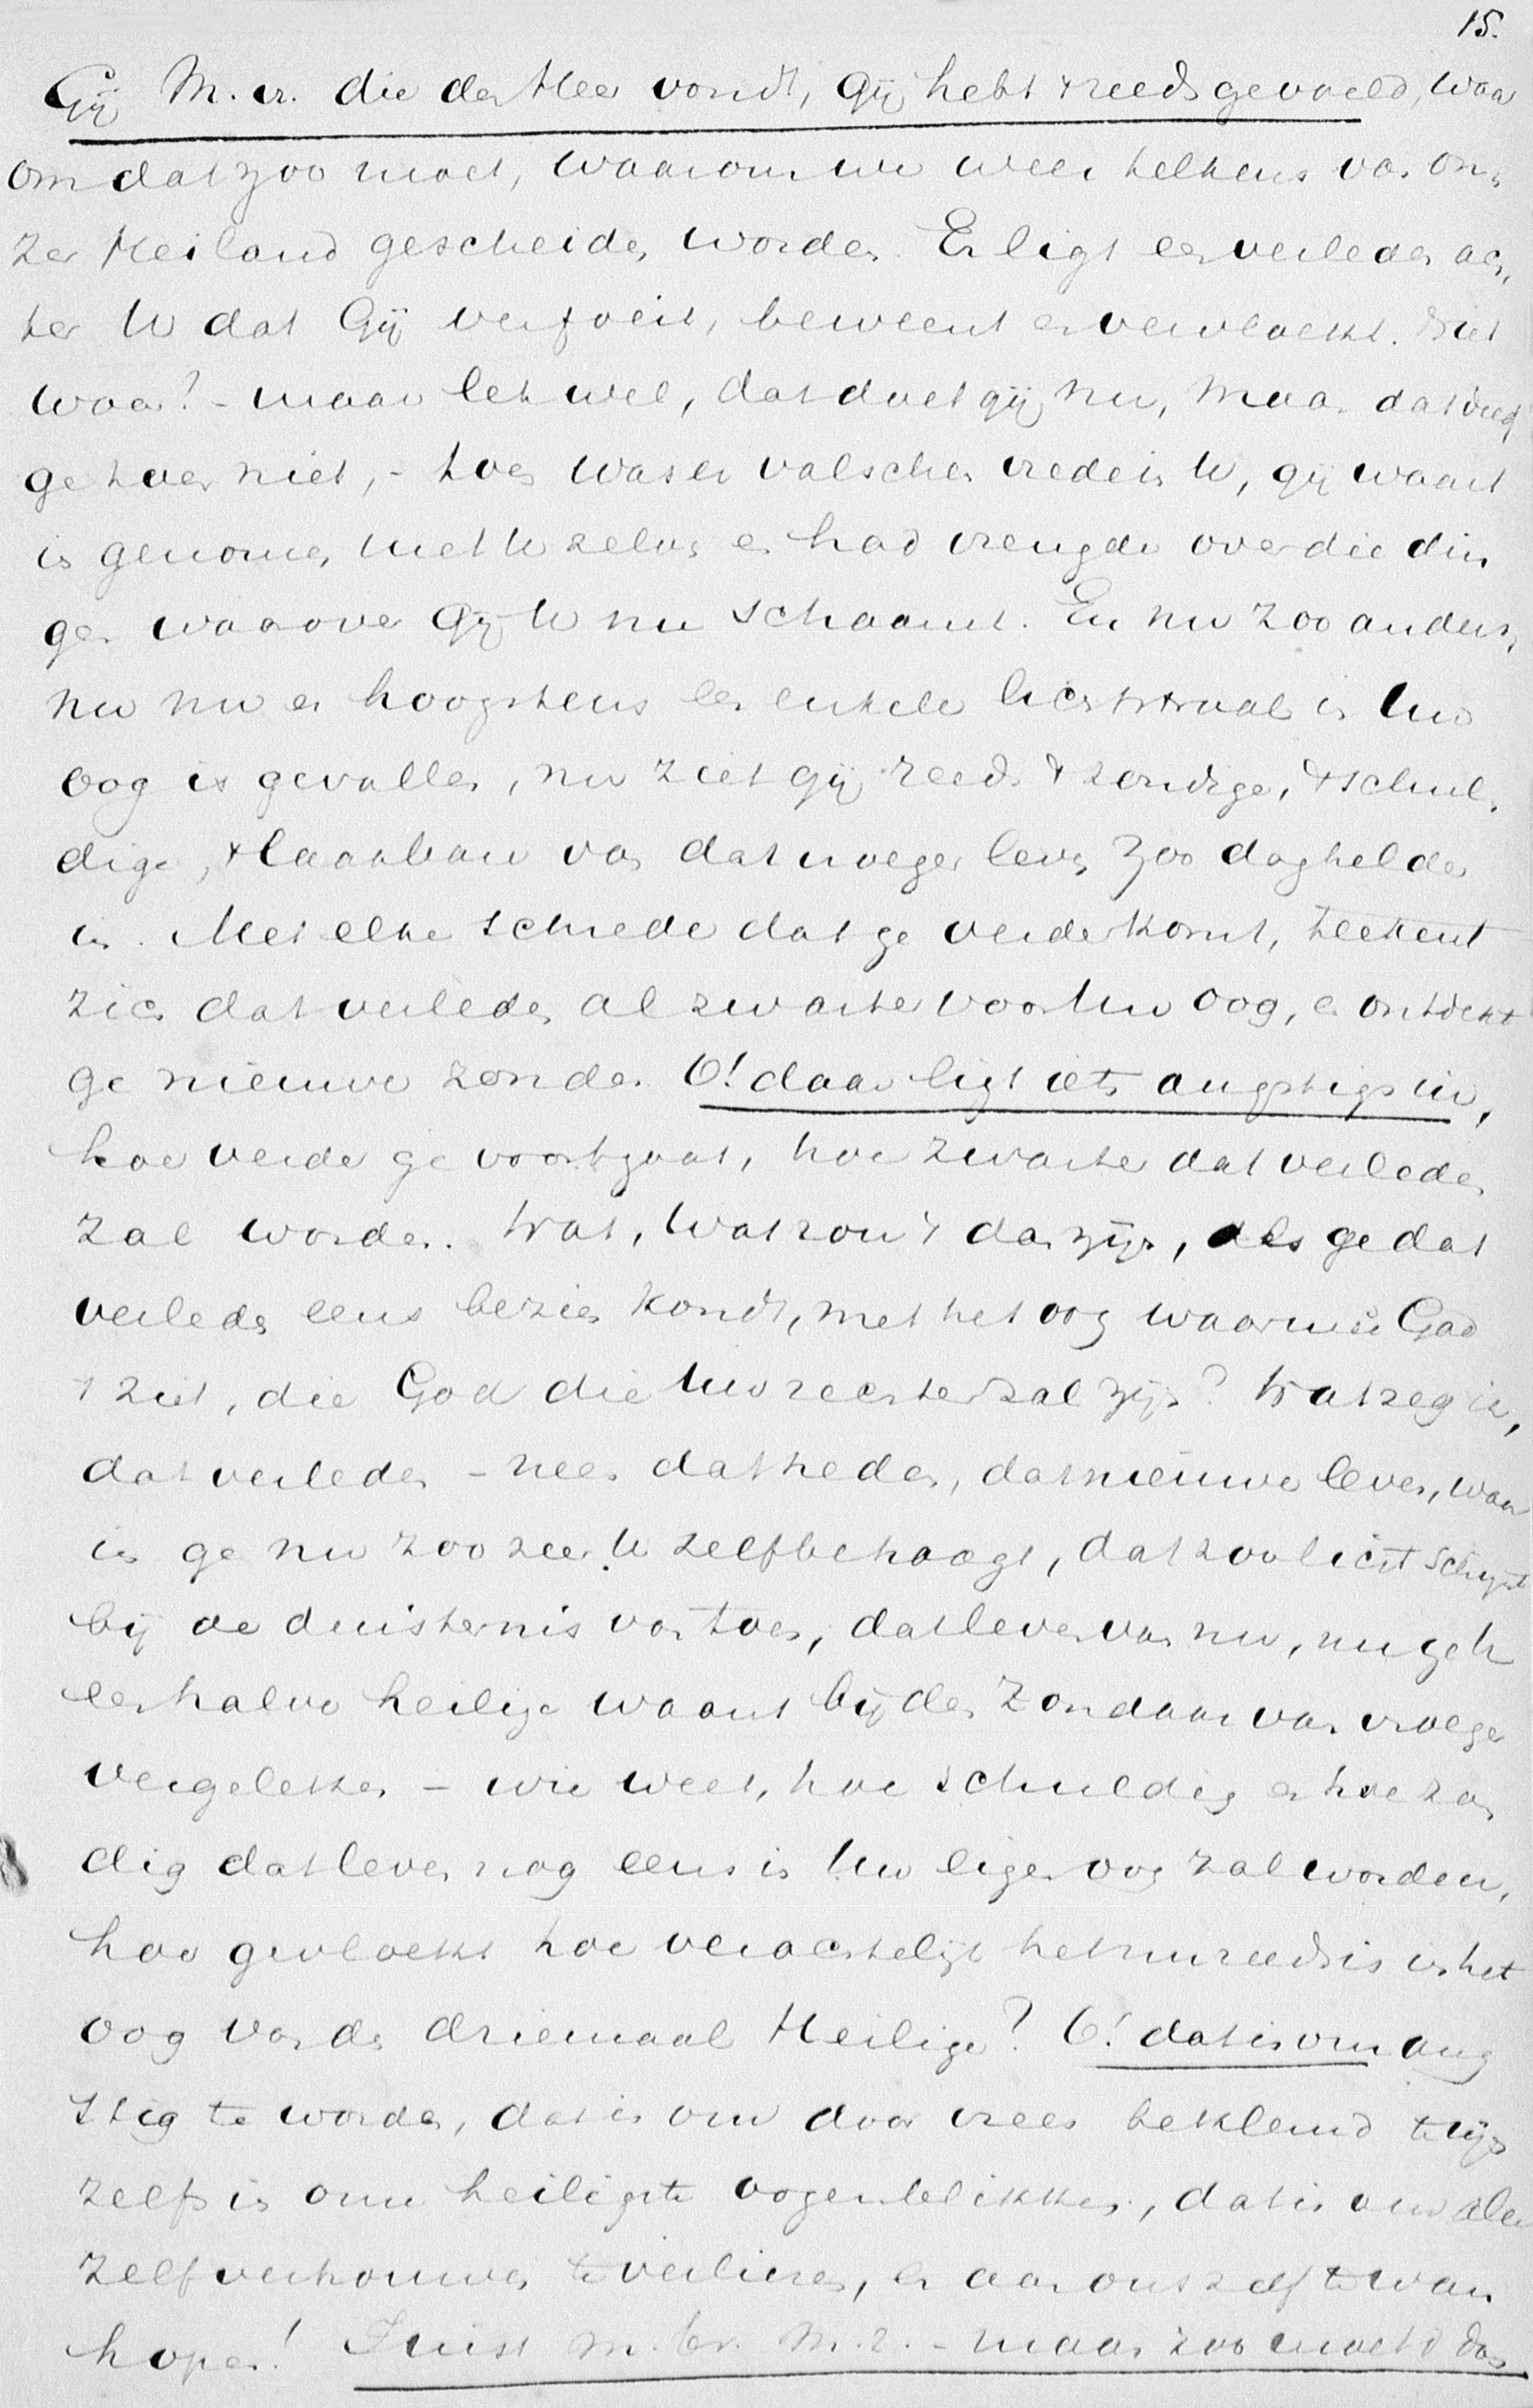 15.
Gij M. v. die den Heer vondt, gij hebt 't reeds gevoeld, waar
om dat zoo moet, waarom we weer telkens van on-
zen Heiland gescheiden worden. Er ligt een verleden ach-
ter U dat Gij verfoeit, beweent en vervloekt. Niet
waar? - maar let wel, dat doet gij nu, maar dat deed
ge toen niet, - toen was er valschen vrede in U, gij waart
in genomen met U zelven en had vreugde over die din
gen waarover Gij U nu schaamt. En nu zoo anders,
nu nu er hoogstens een enkele lichtstraal in Uw
oog is gevallen, nu ziet gij reeds 't zondige, 't schul-
dige, 't laakbare van dat vroeger leven zoo daghelder
in. Met elke schrede dat ge verder komt, teekent
zich dat verleden al zwarter voor Uw oog, en ontdekt
ge nieuwe zonden. O! daar ligt iets angstigs in,
hoe verder ge voortgaat, hoe zwarter dat verleden
zal worden. Wat, wat zou 't dan zijn, als ge dat
verleden eens bezien kondt, met het oog waarmeê God
't ziet, die God die Uw rechter zal zijn? Wat zeg ik,
dat verleden - neen dat heden, dat nieuwe leven, waar
in ge nu zoo zeer U zelf behaagt, dat zoo licht schijnt
bij de duisternis van toen, dat leven van nu, nu ge U
een halve heilige waant bij den zondaar van vroeger
vergeleken - wie weet, hoe schuldig en hoe zon
dig dat leven nog eens in Uw eigen oog zal worden,
hoe gevloekt hoe verachtelijk het nu reeds is in het
oog van den driemaal Heilige? O! dat is om ang
stig te worden, dat is om door vrees beklemd te zijn
zelfs in onze heiligste oogenblikken, dat is om alle
zelfvertrouwen te verliezen, en aan ons zelf te wan
hopen! Juist m. br. m. z. - maar zoo moet 't dan